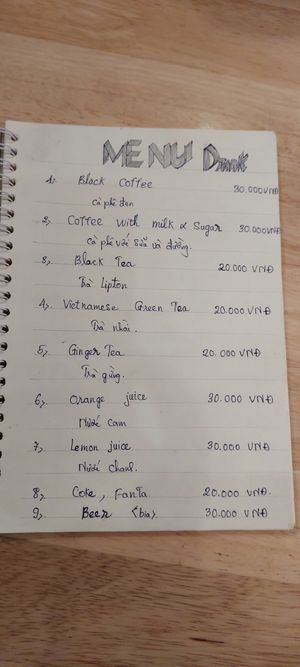 MENU Drink
1, Black Coffee 30.000VNĐ
cà phê đen
2, Coffee with milk & Sugar 30.000VNĐ
cà phê với sữa và đường.
3, Black Tea 20.000 VNĐ
Trà Lipton
4, Vietnamese Green Tea 20.000 VNĐ
Trà nhài.
5, Ginger Tea 20.000 VNĐ
Trà gừng.
6, Orange juice 30.000 VNĐ
Nước cam
7, Lemon juice 30.000 VNĐ
Nước chanh.
8, Coke, Fanta 20.000 VNĐ.
9, Beer <bia> 30.000 VNĐ